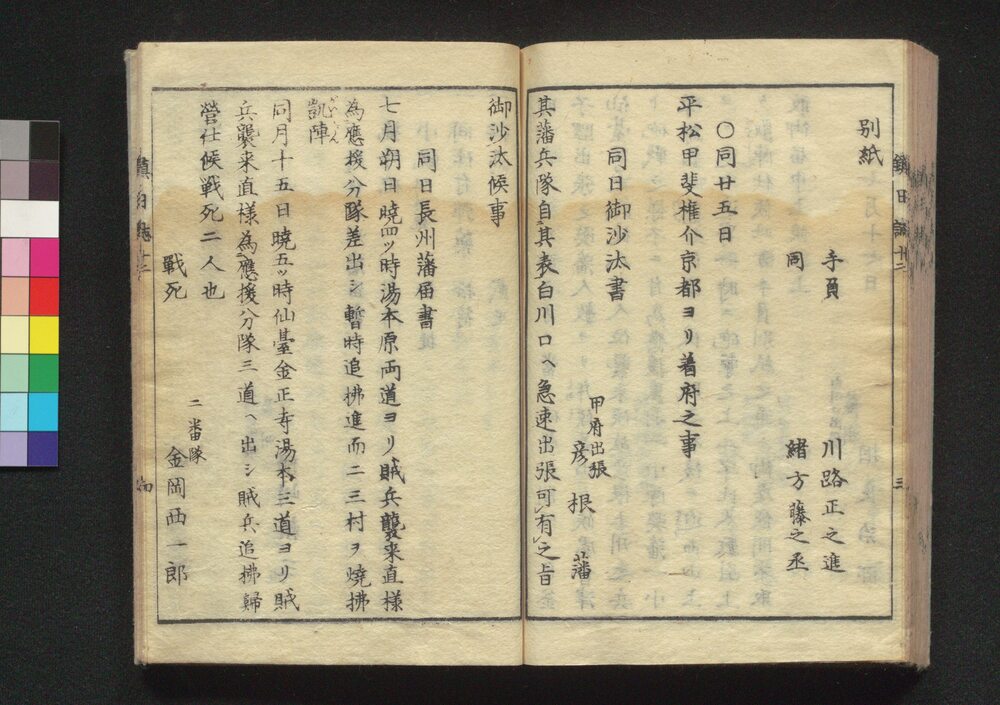 別紙
手負
川路正之進
同
緒方藤之丞
〇同廿五日
平松甲斐権介京都ヨリ着府之事
同日御沙汰書
甲府出張
彦根藩
其藩兵隊自其表白川口ヘ急速出張可有之旨
御沙汰候事
同日長州藩届書
七月朔日暁四ッ時湯本原両道ヨリ賊兵襲来直様
為應援分隊差出シ暫時追拂進而二三村ヲ焼拂
凱陣
同月十五日暁五ッ時仙臺金正寺湯本三道ヨリ賊
兵襲来直様為應援分隊三道ヘ出シ賊兵追拂歸
營仕候戰死二人也
戰死
二番隊
金岡西一郎
鎮日誌十二
三